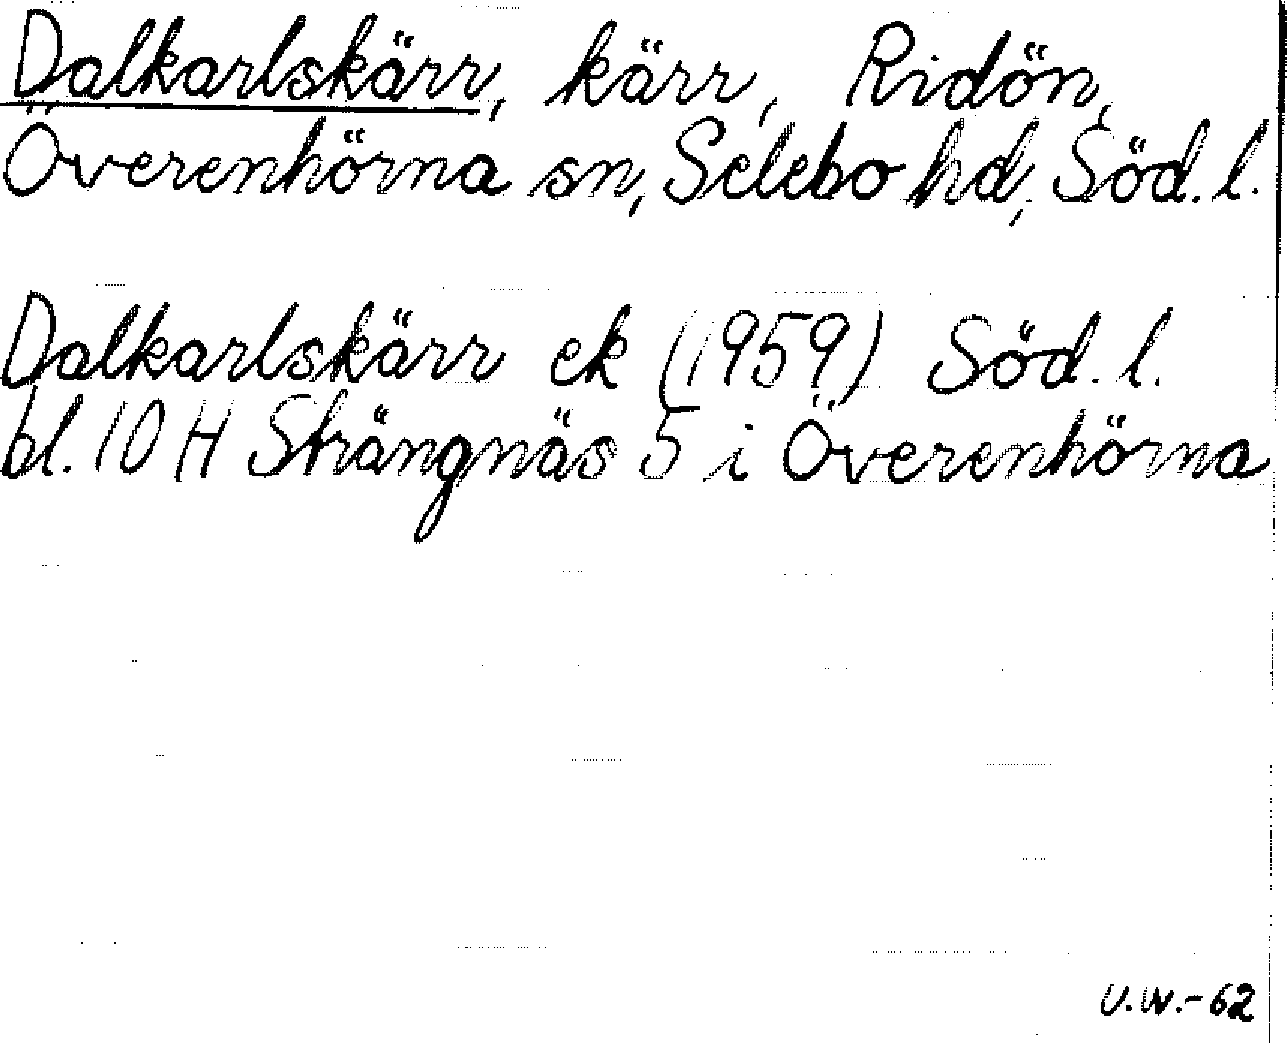 Dalkarlskärr, kärr, Ridön,
Överenhörna sn, Selebo hd, Söd. l.
Dalkarlskärr ek (1959) Söd. l.
bl. 10 H Strängnäs 5 i Överenhörna
U.W.-62